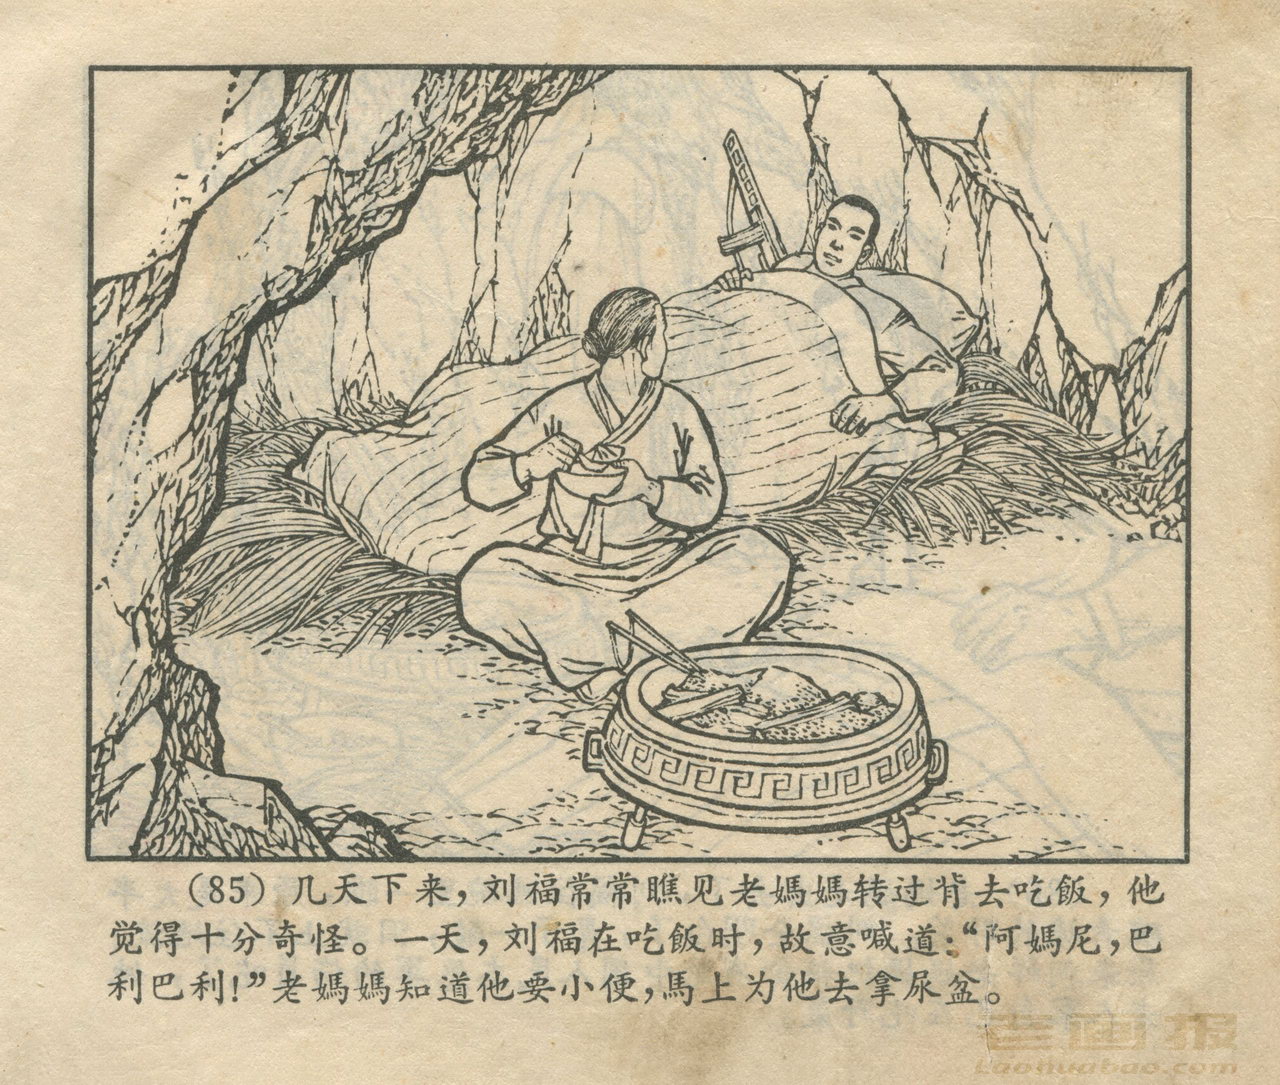 (85) 几天下来，刘福常常瞧见老媽媽转过背去吃飯，他
觉得十分奇怪。一天，刘福在吃飯时，故意喊道：“阿媽尼，巴
利巴利！”老媽媽知道他要小便，馬上为他去拿尿盆。
老画报
Laohuabao.com